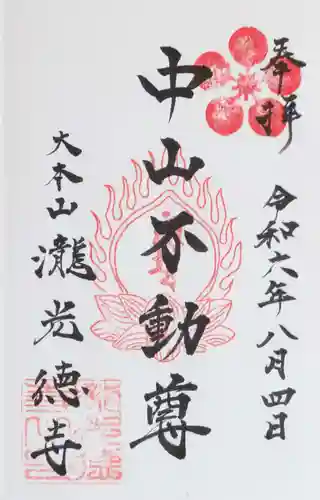 奉拝
令和六年八月四日
中山不動尊
大本山
瀧光徳寺